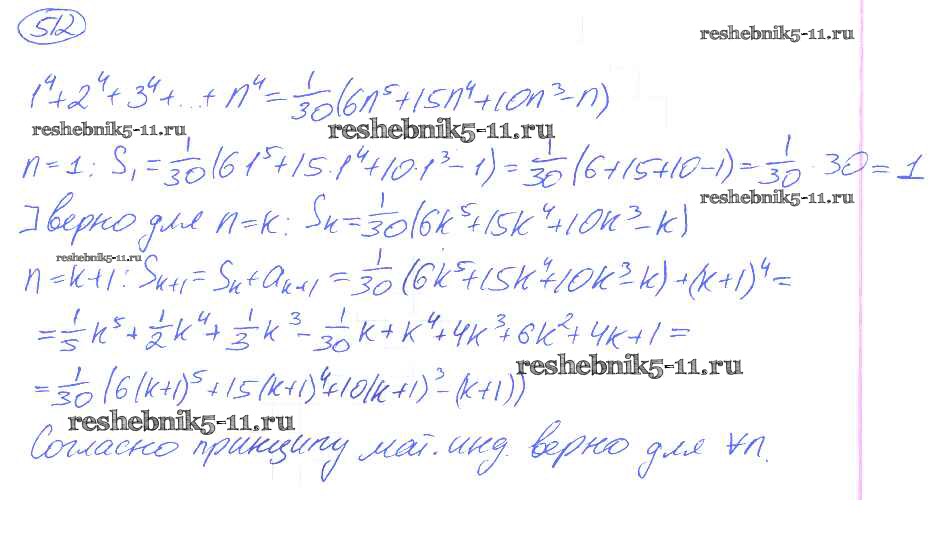 512
reshebnik5-11.ru
1⁴+2⁴+3⁴+...+n⁴=1/30(6n⁵+15n⁴+10n³-n)
reshebnik5-11.ru reshebnik5-11.ru
n=1: S₁=1/30(6·1⁵+15·1⁴+10·1³-1)=1/30(6+15+10-1)=1/30·30=1
reshebnik5-11.ru
] верно для n=k: Sk=1/30(6k⁵+15k⁴+10k³-k)
reshebnik5-11.ru
n=k+1: Sk+1=Sk+ak+1=1/30(6k⁵+15k⁴+10k³-k)+(k+1)⁴=
=1/5k⁵+1/2k⁴+1/3k³-1/30k+k⁴+4k³+6k²+4k+1=
reshebnik5-11.ru
=1/30(6(k+1)⁵+15(k+1)⁴+10(k+1)³-(k+1))
reshebnik5-11.ru
Согласно принципу мат. инд. верно для ∀n.